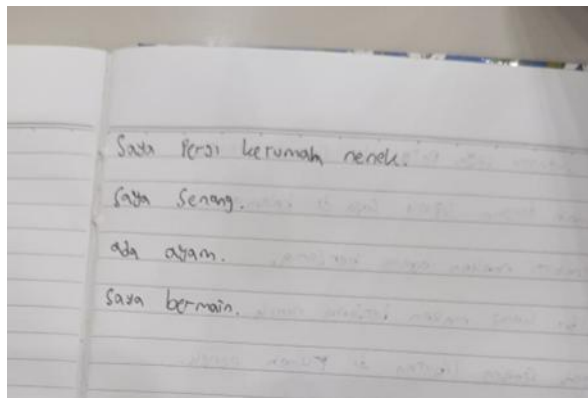 Saya Pergi kerumah nenek.
Saya Senang.
ada ayam.
Saya bermain.